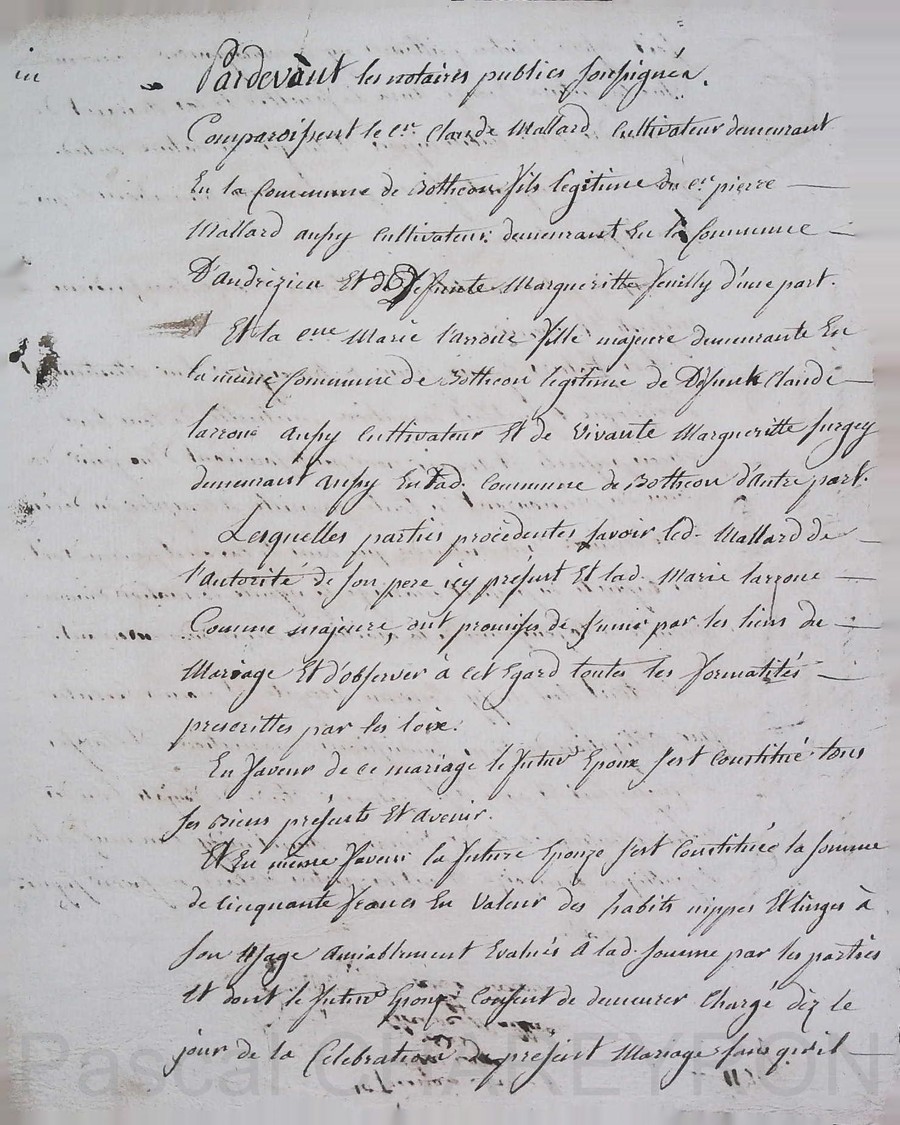 Pardevant les notaires publics soussignés.
Comparoissent le cen. Claude Mallard Cultivateur demeurant
En la Commune de Botheon fils legitime du cen. pierre
Mallard aussy Cultivateur demeurant En la Commune
D'andrezieu Et de Defunte Margueritte feuilly d'une part.
Et la cnne Marie larroué fille majeure demeurante En
la même Commune de Botheon legitime de Défunt Claude
larroué aussy Cultivateur Et de Vivante Margueritte
demeurant aussy En lad. Commune de Botheon d'autre part.
Lesquelles parties procédentes savoir led. Mallard de
l'autorité de son pere icy présent Et lad. Marie larroue
Comme majeure, ont promis de s'unir par les liens du
Mariage Et d'observer à cet Egard toutes les formalités
prescrittes par les loix.
En faveur de ce mariage le futur Epoux s'est Constitué tous
ses Biens présents Et avenir.
Et En même faveur la future Epouze s'est Constituée la somme
de Cinquante francs En Valeur des habits nippes Et linges à
son Usage amiablement Evalués à lad. somme par les parties
Et dont le futur Epoux Consent de demeurer Chargé dez le
jour de la Célébration du présent Mariage sans qu'il
Pascal CHAREYRON